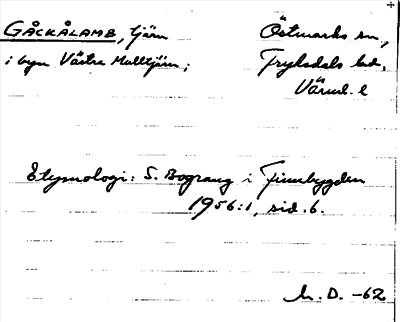 GÅCKÅLAMB, tjärn Östmarks sn,
i byn Västra Mulltjärn; Fryksdals hd,
Värml. l
Etymologi: S. Bograng i Finnbygden
1956:1, sid. 6.
h. D. -62